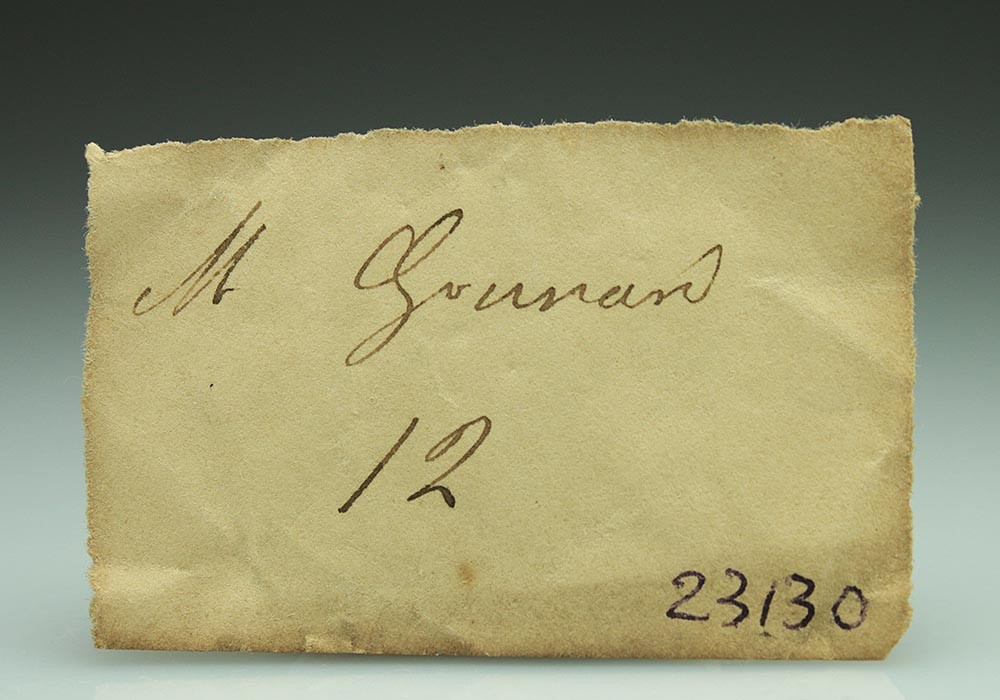 M Gounan
12
23130